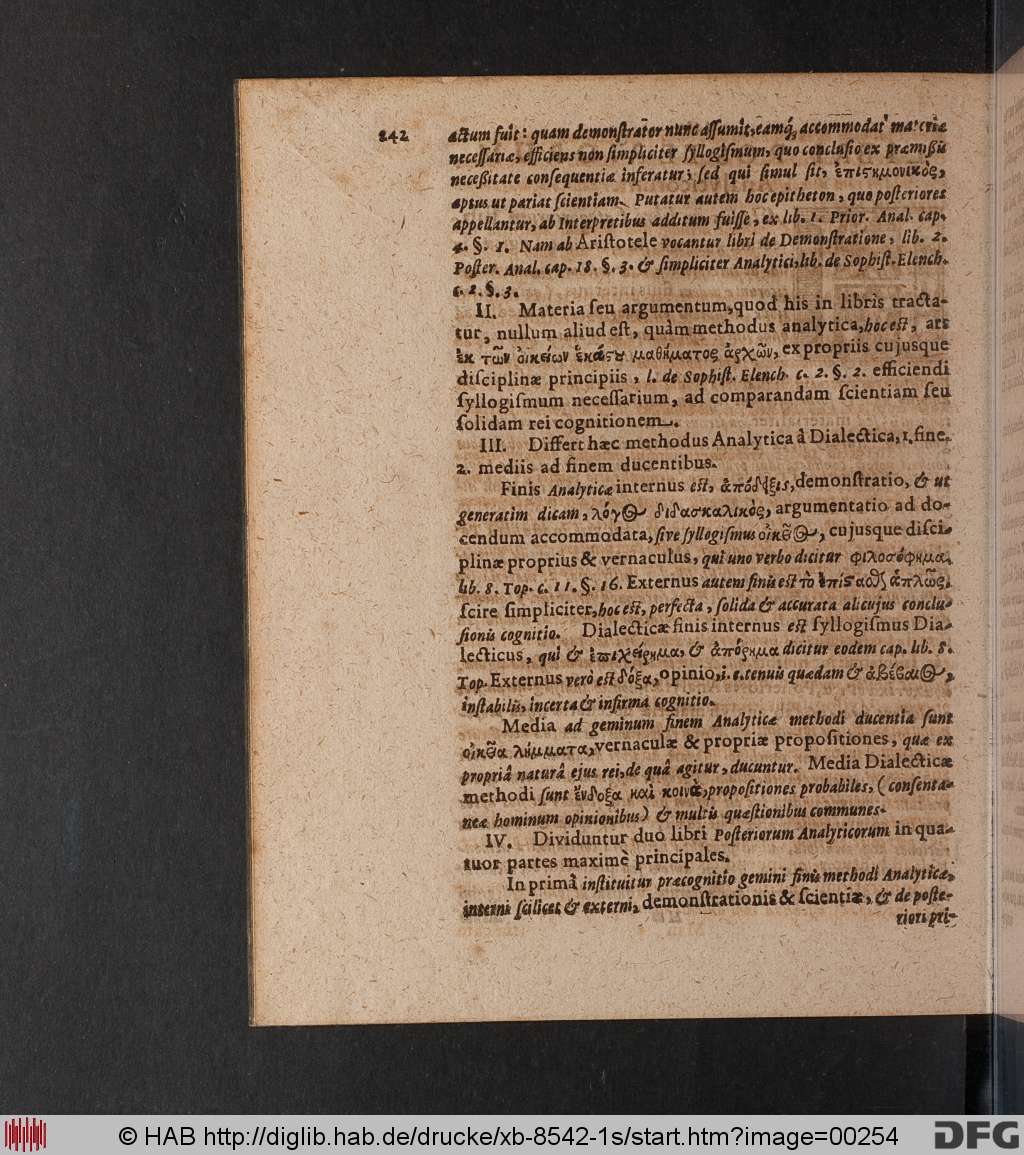 242
actum fuit: quam demonſtrator nunc aſſumit, eamq́; accommodat materiæ
neceſſariæ, efficiens non ſimpliciter ſyllogiſmum, quo concluſio ex præmißis
neceßitate conſequentiæ inferatur; ſed qui ſimul ſit, ἐπιϛημονικὸς,
aptus ut pariat ſcientiam. Putatur autem hoc epitheton, quo poſteriores
appellantur, ab Interpretibus additum fuiſſe, ex lib. 1. Prior. Anal. cap.
4. §. 1. Nam ab Ariſtotele vocantur libri de Demonſtratione, lib. 2.
Poſter. Anal. cap. 18. §. 3. & ſimpliciter Analytici, lib. de Sophiſt. Elench.
c. 2. §. 3.
II. Materia ſeu argumentum, quod his in libris tracta-
tur, nullum aliud eſt, quàm methodus analytica, hoc eſt, ars
ἐκ τῶν οἰκείων ἑκάϛου μαθήματος ἀρχῶν, ex propriis cujusque
diſciplinæ principiis, l. de Sophiſt. Elench. c. 2. §. 2. efficiendi
ſyllogiſmum neceſſarium, ad comparandam ſcientiam ſeu
ſolidam rei cognitionem.
III. Differt hæc methodus Analytica â Dialectica, 1. fine.
2. mediis ad finem ducentibus.
Finis Analyticæ internus eſt, ἀπόδειξις, demonſtratio, & ut
generatim dicam, λόγος διδασκαλικὸς, argumentatio ad do-
cendum accommodata, ſive ſyllogiſmus οἰκεῖος, cujusque diſci-
plinæ proprius & vernaculus, qui uno verbo dicitur φιλοσόφημα,
lib. 8. Top. c. 11. §. 16. Externus autem finis eſt τὸ ἐπίϛαϑαι ἁπλῶς,
ſcire ſimpliciter, hoc eſt, perfecta, ſolida & accurata alicujus conclu-
ſionis cognitio. Dialecticæ finis internus eſt ſyllogiſmus Dia-
lecticus, qui & ἐπιχείρημα, & ἀπόρημα dicitur eodem cap. lib. 8.
Top. Externus verò eſt δόξα, opinio, i. e. tenuis quædam & ἀβέβαιος,
inſtabilis, incerta & infirma cognitio.
Media ad geminum finem Analyticæ methodi ducentia ſunt
οἰκεῖα λήμματα, vernaculæ & propriæ propoſitiones, quæ ex
propriâ naturâ ejus rei, de quâ agitur, ducuntur. Media Dialecticæ
methodi ſunt ἔνδοξα καὶ κοινὰ, propoſitiones probabiles, (conſenta-
neæ hominum opinionibus) & multis quæſtionibus communes.
IV. Dividuntur duo libri Poſteriorum Analyticorum in qua-
tuor partes maximè principales.
In primâ inſtituitur præcognitio gemini finis methodi Analyticæ,
interni ſcilicet & externi, demonſtrationis & ſcientiæ, & de poſte-
riori pri-
© HAB http://diglib.hab.de/drucke/xb-8542-1s/start.htm?image=00254
DFG